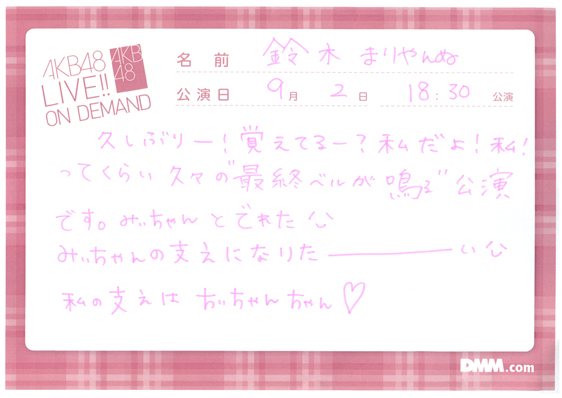 AKB48
LIVE!!
ON DEMAND
AKB
48
名前 鈴木まりやんぬ
公演日 9月 2日 18:30 公演
久しぶりー!覚えてるー?私だよ!私!
ってくらい久々の"最終ベルが鳴る"公演
です。みぃちゃんとでれた
みぃちゃんの支えになりた――――い
私の支えはちぃちゃんちゃん♡
DMM.com